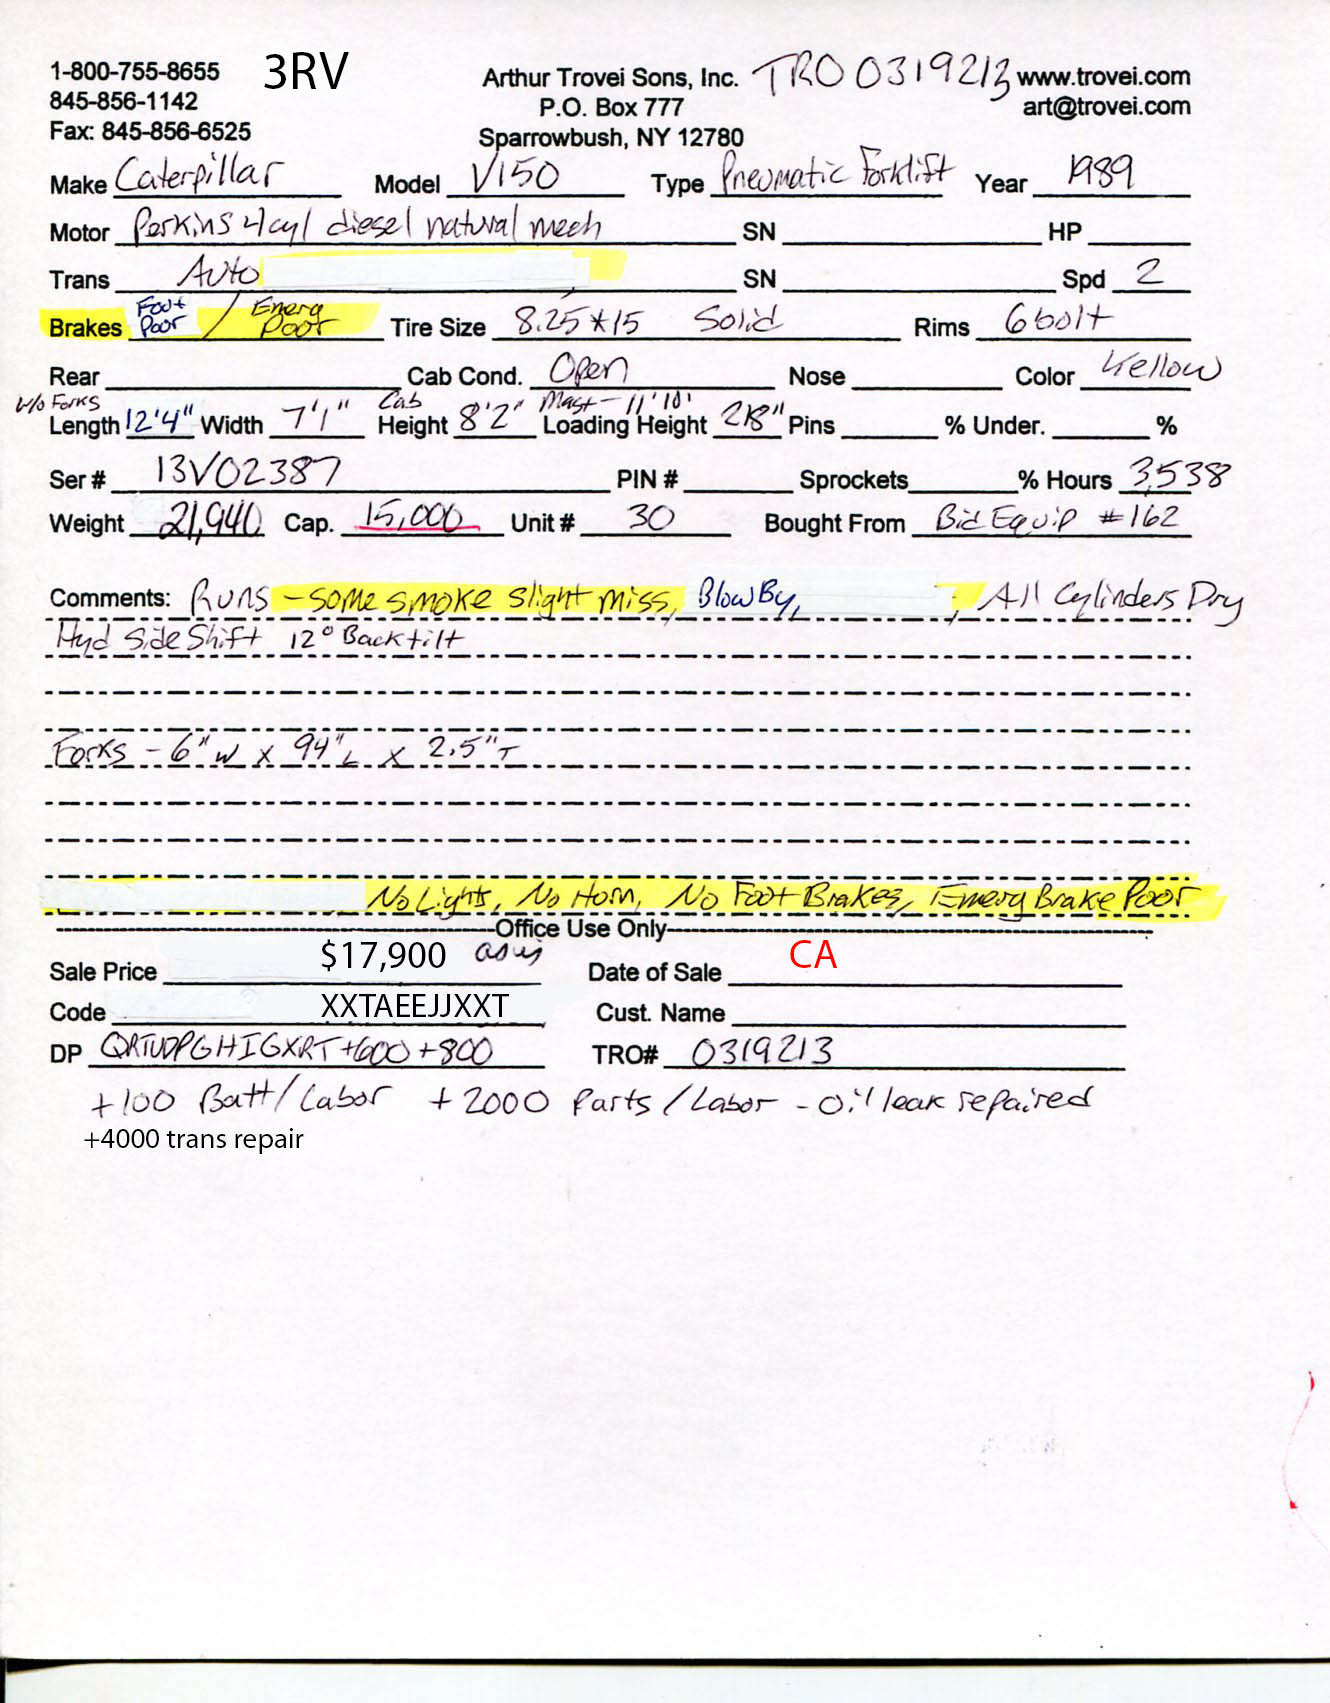 1-800-755-8655 3RV Arthur Trovei Sons, Inc. TRO 0319213 www.trovei.com
845-856-1142 P.O. Box 777 art@trovei.com
Fax: 845-856-6525 Sparrowbush, NY 12780
Make Caterpillar Model V150 Type Pneumatic Forklift Year 1989
Motor Perkins 4cyl diesel natural mech SN HP
Trans Auto SN Spd 2
Brakes Foot Poor / Emerg Poor Tire Size 8.25*15 Solid Rims 6bolt
Rear Cab Cond. Open Nose Color Yellow
w/o Forks Cab Mast - 11'10'
Length 12'4" Width 7'1" Height 8'2" Loading Height 218" Pins % Under. %
Ser # 13V02387 PIN # Sprockets % Hours 3,538
Weight 21,940 Cap. 15,000 Unit # 30 Bought From Bid Equip #162
Comments: Runs - some smoke slight miss, BlowBy, , All Cylinders Dry
Hyd Side Shift 12° Back tilt
Forks - 6" W x 94" L x 2.5" T
No Lights, No Horn, No Foot Brakes, Emerg Brake Poor
Office Use Only
Sale Price $17,900 as is Date of Sale CA
Code XXTAEEJJXXT Cust. Name
DP QRTUDPGHIGXRT+600+800 TRO# 0319213
+100 Batt/Labor +2000 Parts/Labor - oil leak repaired
+4000 trans repair